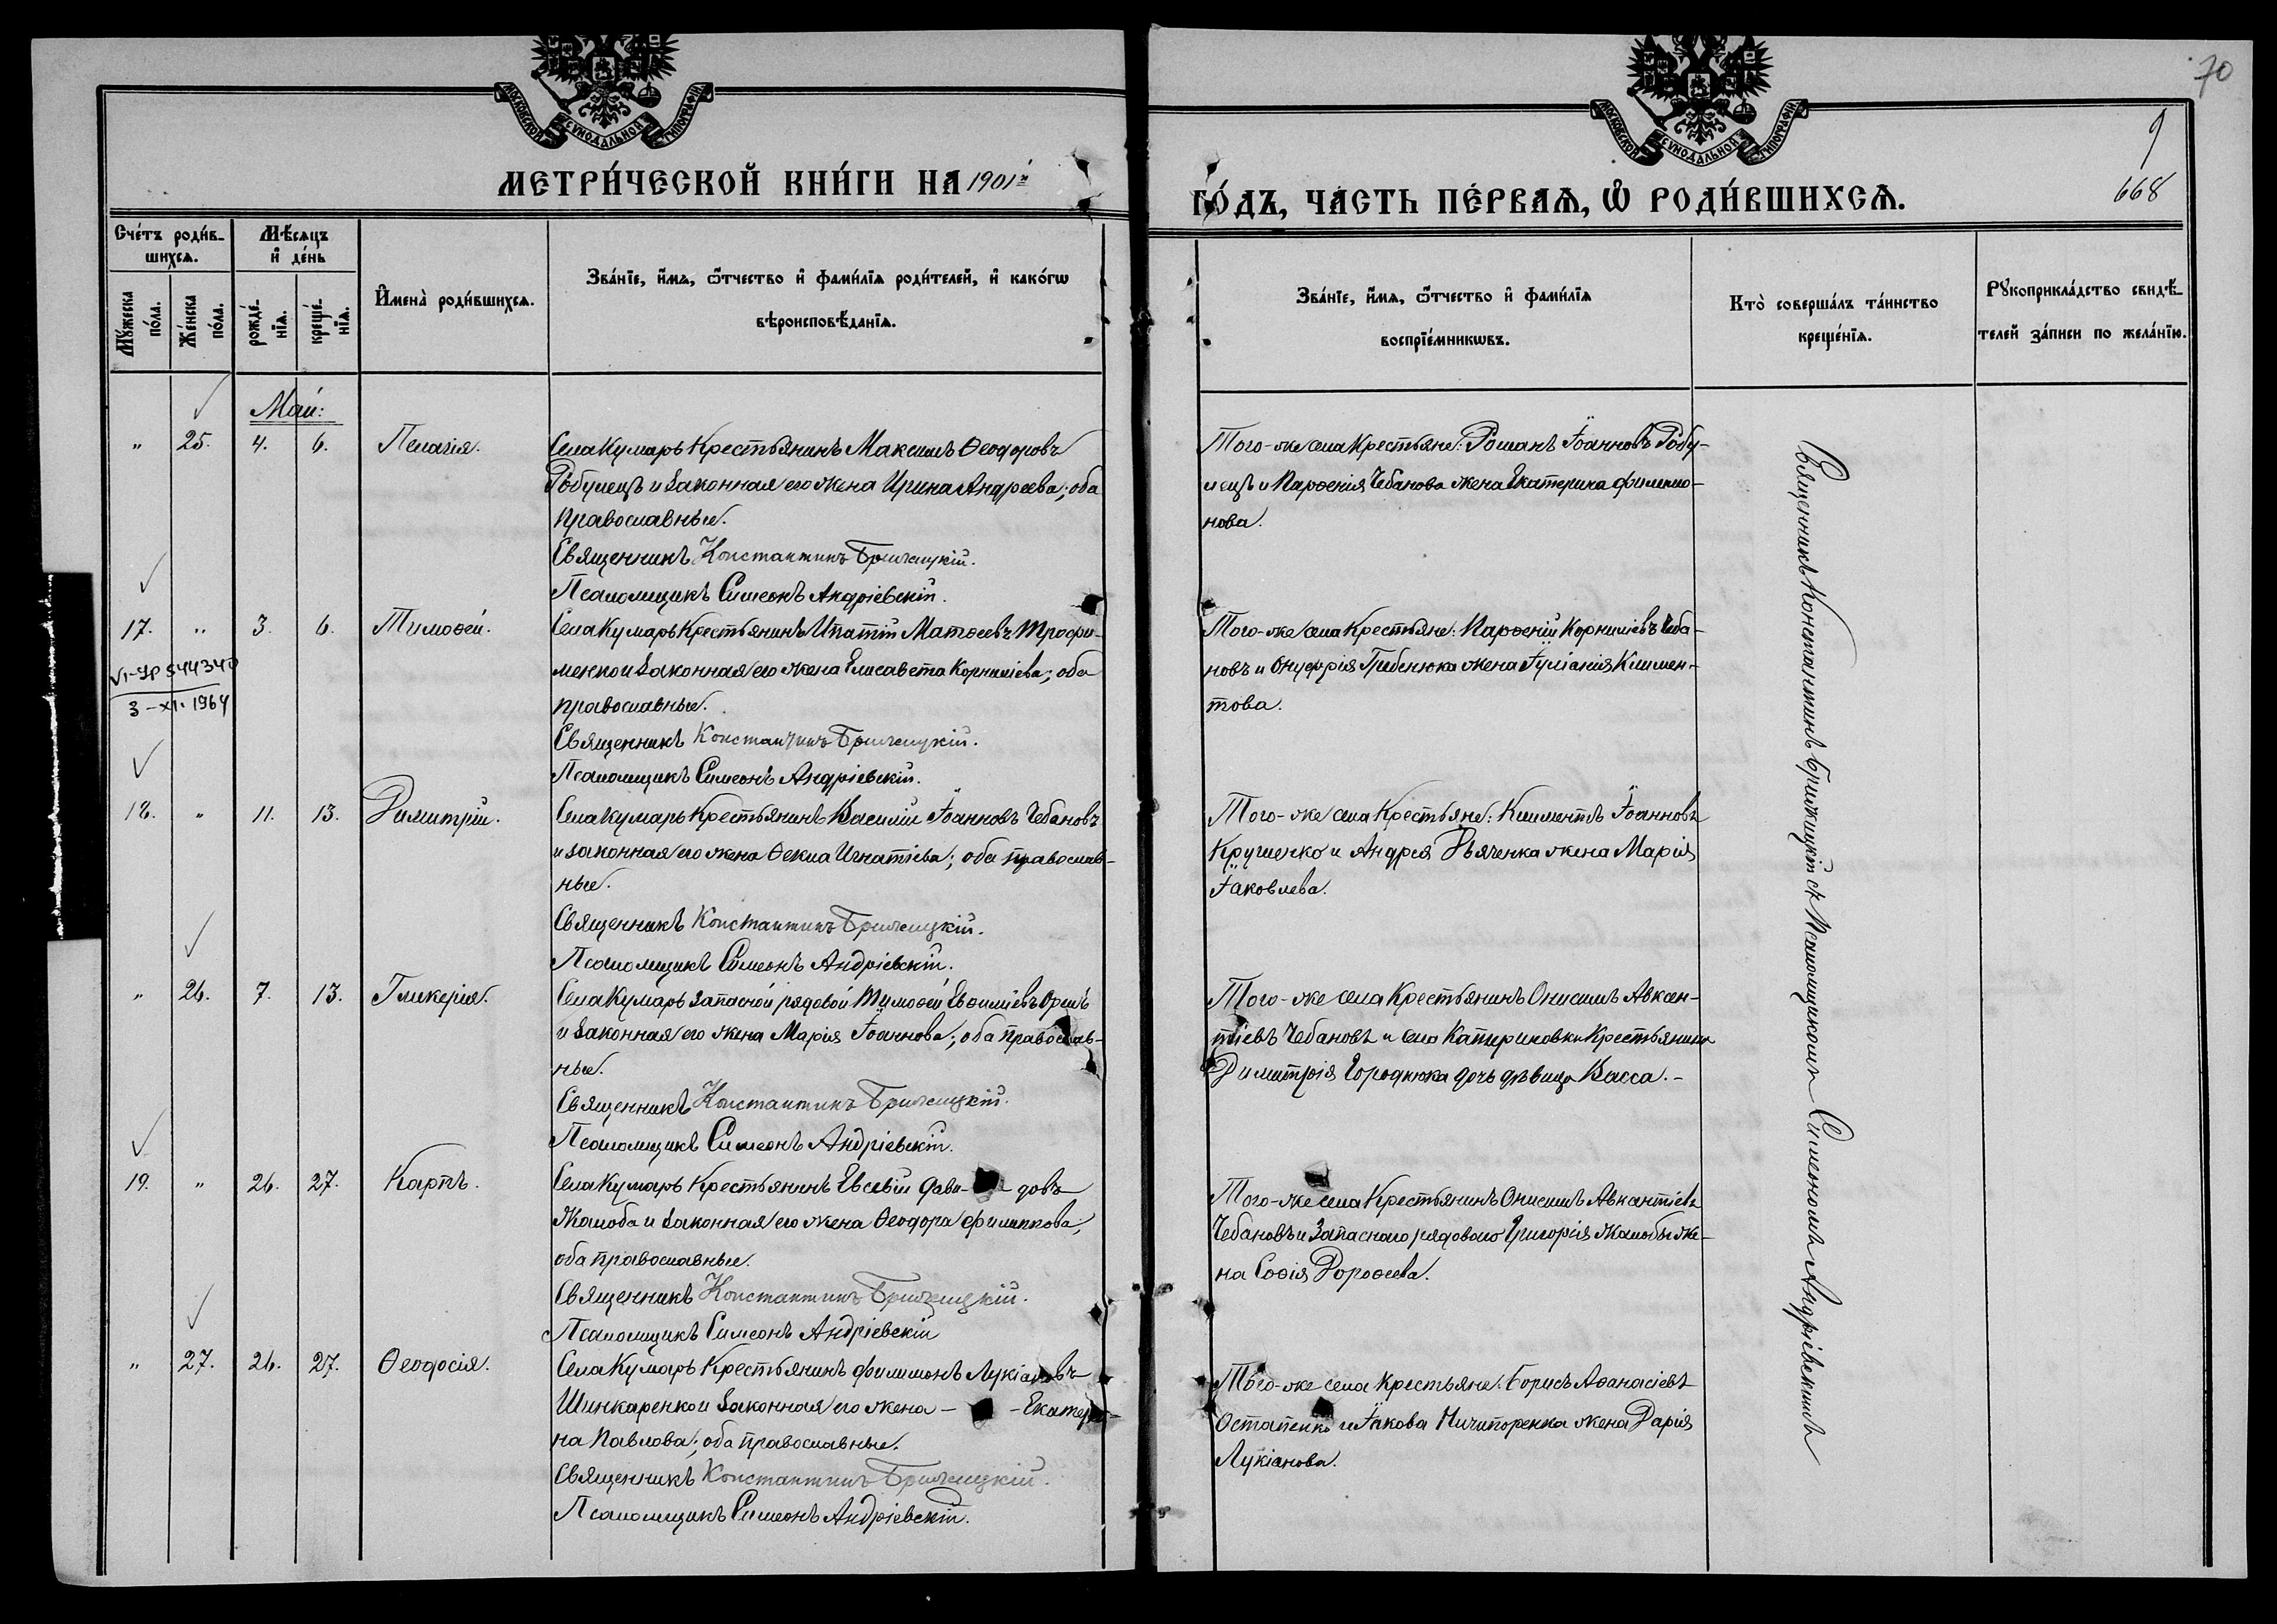 70
9
668
МОСКОВСКОЙ СѴНОДАЛЬНОЙ ТИПОГРАФІИ
МОСКОВСКОЙ СѴНОДАЛЬНОЙ ТИПОГРАФІИ
МЕТРИ́ЧЕСКОЙ КНИ́ГИ НА 1901й
ГО́ДЪ, ЧА́СТЬ ПЕ́РВАѦ, Ѡ҆ РОДИ́ВШИХСѦ.
Сче́тъ роди́в-
шихсѧ.
Мѣ́сѧцъ
и҆ де́нь
Мꙋжеска по́ла.
Же́нска по́ла.
рожде́-
нїѧ.
креще́-
нїѧ.
И҆мена̀ роди́вшихсѧ.
Зва́нїе, и҆́мѧ, ѻ҆́тчество и҆ фами́лїѧ роди́телей, и҆ како́гѡ
вѣроисповѣ́данїѧ.
Зва́нїе, и҆́мѧ, ѻ҆́тчество и҆ фами́лїѧ
воспрїе́мникѡвъ.
Кто̀ соверша́лъ та́инство
креще́нїѧ.
Рꙋкоприкла́дство свидѣ́-
телей за́писи по жела́нїю.
Май:
" 25. 4. 6. Пелагія.
Села Кумаръ Крестьянинъ Максимъ Ѳеодоровъ
Робулецъ и законная его жена Ирина Андреева; оба
православные.
Священникъ Константинъ Брижицкій.
Псаломщикъ Симеонъ Андріевскій.
Того-же села Крестьяне: Романъ Іоанновъ Робу-
лецъ и Парѳенія Чебанова жена Екатерина Филимо-
нова.
17. " 3. 6. Тимоѳей.
VI-УР 544340
3-XI-1964
Села Кумаръ Крестьянинъ Ипатій Матѳеевъ Трофи-
менко и законная его жена Елисавета Корниліева; оба
православные.
Священникъ Константинъ Брижицкій.
Псаломщикъ Симеонъ Андріевскій.
Того-же села Крестьяне: Парѳеній Корниліевъ Чеба-
новъ и Онуфрія Гибенюка жена Іуліанія Климен-
това.
18. " 11. 13. Димитрій.
Села Кумаръ Крестьянинъ Василій Іоанновъ Чебановъ
и законная его жена Ѳекла Игнатіева; оба православ-
ные.
Священникъ Константинъ Брижицкій.
Псаломщикъ Симеонъ Андріевскій.
Того-же села Крестьяне: Климентъ Іоанновъ
Кругленко и Андрея Дьяченка жена Марія
Іаковлева.
" 26. 7. 13. Гликерія.
Села Кумаръ запасной рядовой Тимоѳей Евѳиміевъ Орелъ
и законная его жена Марія Іоаннова; оба православ-
ные.
Священникъ Константинъ Брижицкій.
Псаломщикъ Симеонъ Андріевскій.
Того-же села Крестьянинъ Онисимъ Авксен-
тіевъ Чебановъ и села Катериновки Крестьянина
Димитрія Городнюка дочь дѣвица Васса.-
19. " 26. 27. Карпъ.
Села Кумаръ Крестьянинъ Евсевій Дави- довъ
Жалоба и законная его жена Ѳеодора Филиппова;
оба православные.
Священникъ Константинъ Брижицкій.
Псаломщикъ Симеонъ Андріевскій
Того-же села Крестьянинъ Онисимъ Авксентіевъ
Чебановъ и запасного рядового Григорія Жалобы же-
на Софія Дороѳеева.
" 27. 26. 27. Ѳеодосія.
Села Кумаръ Крестьянинъ Филимонъ Лукіановъ
Шинкаренко и законная его жена - - Екатери-
на Павлова; оба православные.
Священникъ Константинъ Брижицкій.
Псаломщикъ Симеонъ Андріевскій.
Того-же села Крестьяне: Борисъ Аѳанасіевъ
Остапенко и Іакова Ничипоренка жена Дарія
Лукіанова.
Священникъ Константинъ Брижицкій съ Псаломщикомъ Симеономъ Андріевскимъ